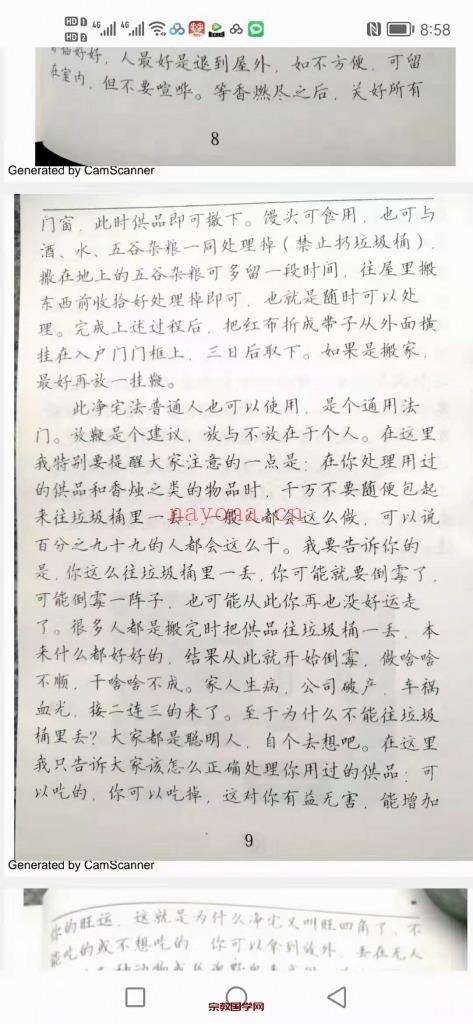 HD 1 4G 4G
HD 2
8:58
好好，人最好是退到屋外，如不方便，可留
在室内，但不要喧哗。等香燃尽之后，关好所有
8
Generated by CamScanner
门窗，此时供品即可撤下。馒头可食用，也可与
酒、水、五谷杂粮一同处理掉（禁止扔垃圾桶），
撒在地上的五谷杂粮可多留一段时间，往屋里搬
东西前收拾好处理掉即可，也就是随时可以处
理。完成上述过程后，把红布折成带子从外面横
挂在入户门门框上，三日后取下。如果是搬家，
最好再放一挂鞭。
此净宅法普通人也可以使用，是个通用法
门。放鞭是个建议，放与不放在于个人。在这里
我特别要提醒大家注意的一点是：在你处理用过
的供品和香烛之类的物品时，千万不要随便包起
来往垃圾桶里一丢，一般人都会这么做，可以说
百分之九十九的人都会这么干。我要告诉你的
是，你这么往垃圾桶里一丢，你可能就要倒霉了，
可能倒霉一阵子，也可能从此你再也没好运走
了。很多人都是搬完时把供品往垃圾桶一丢，本
来什么都好好的，结果从此就开始倒霉，做啥啥
不顺，干啥啥不成。家人生病，公司破产，车祸
血光，接二连三的来了。至于为什么不能往垃圾
桶里丢？大家都是聪明人，自个去想吧。在这里
我只告诉大家该怎么正确处理你用过的供品：可
以吃的，你可以吃掉，这对你有益无害，能增加
nayona.cn
9
Generated by CamScanner
你的旺运，这就是为什么净宅又叫旺四角了。不
能吃的或不想吃的，你可以拿到郊外，丢在无人
宗教国学网